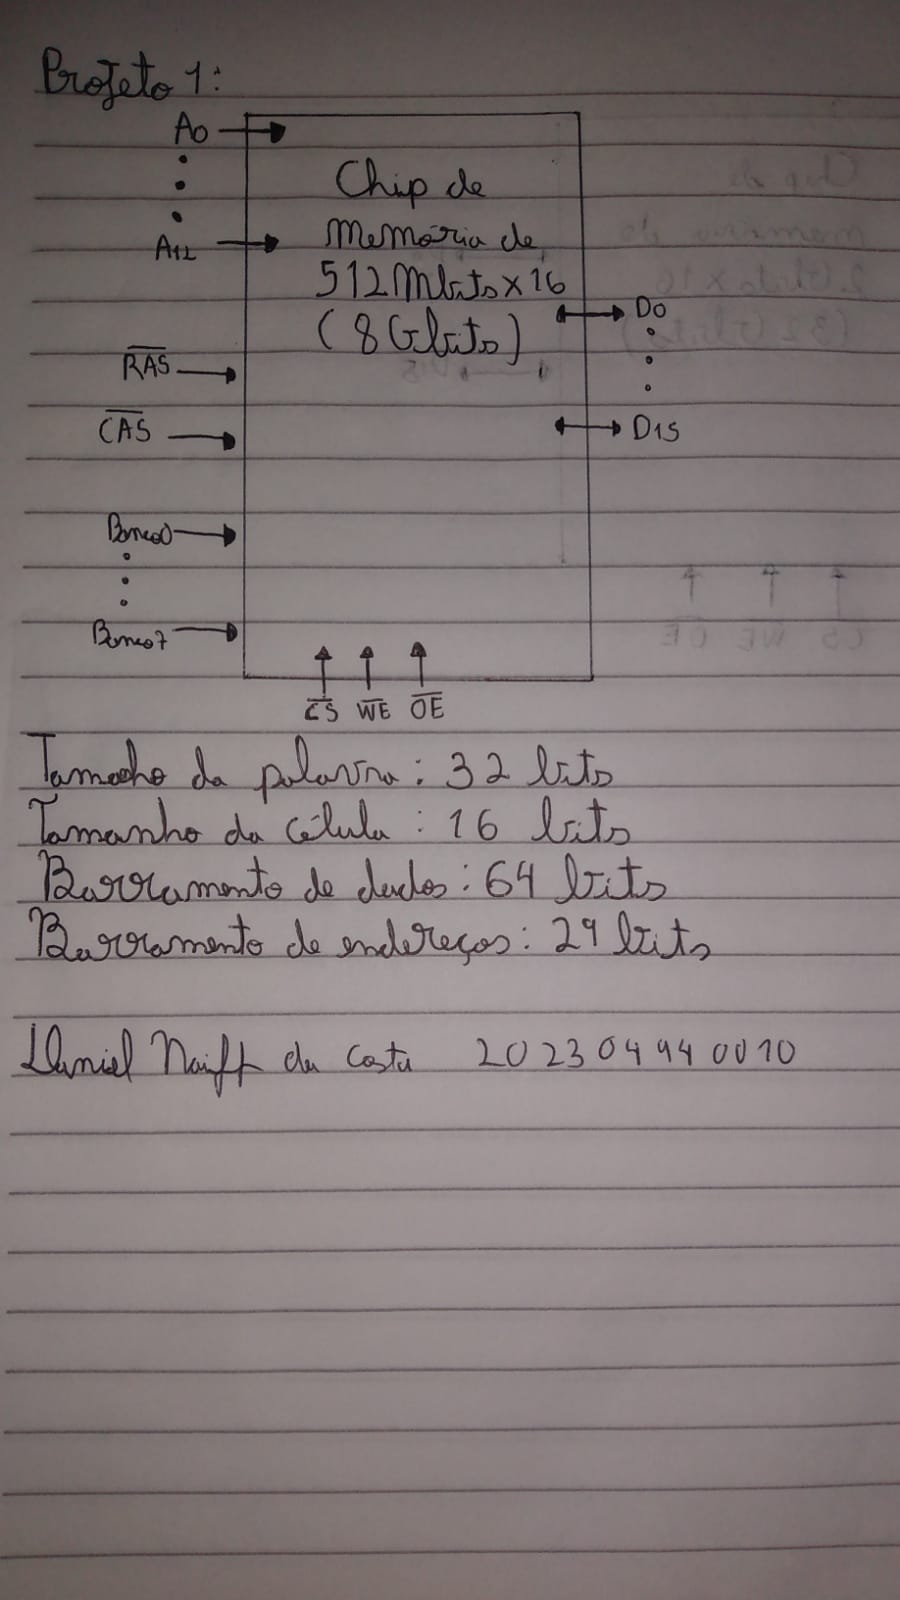 Projeto 1:
A0
Chip de
memória de
A12
512Mbits x 16
(8 Gbits)
D0
RAS
CAS
D15
Banco0
Banco7
CS WE OE
Tamanho da palavra: 32 bits
Tamanho da célula: 16 bits
Barramento de dados: 64 bits
Barramento de endereços: 29 bits
Daniel Naiff da Costa 202304940010